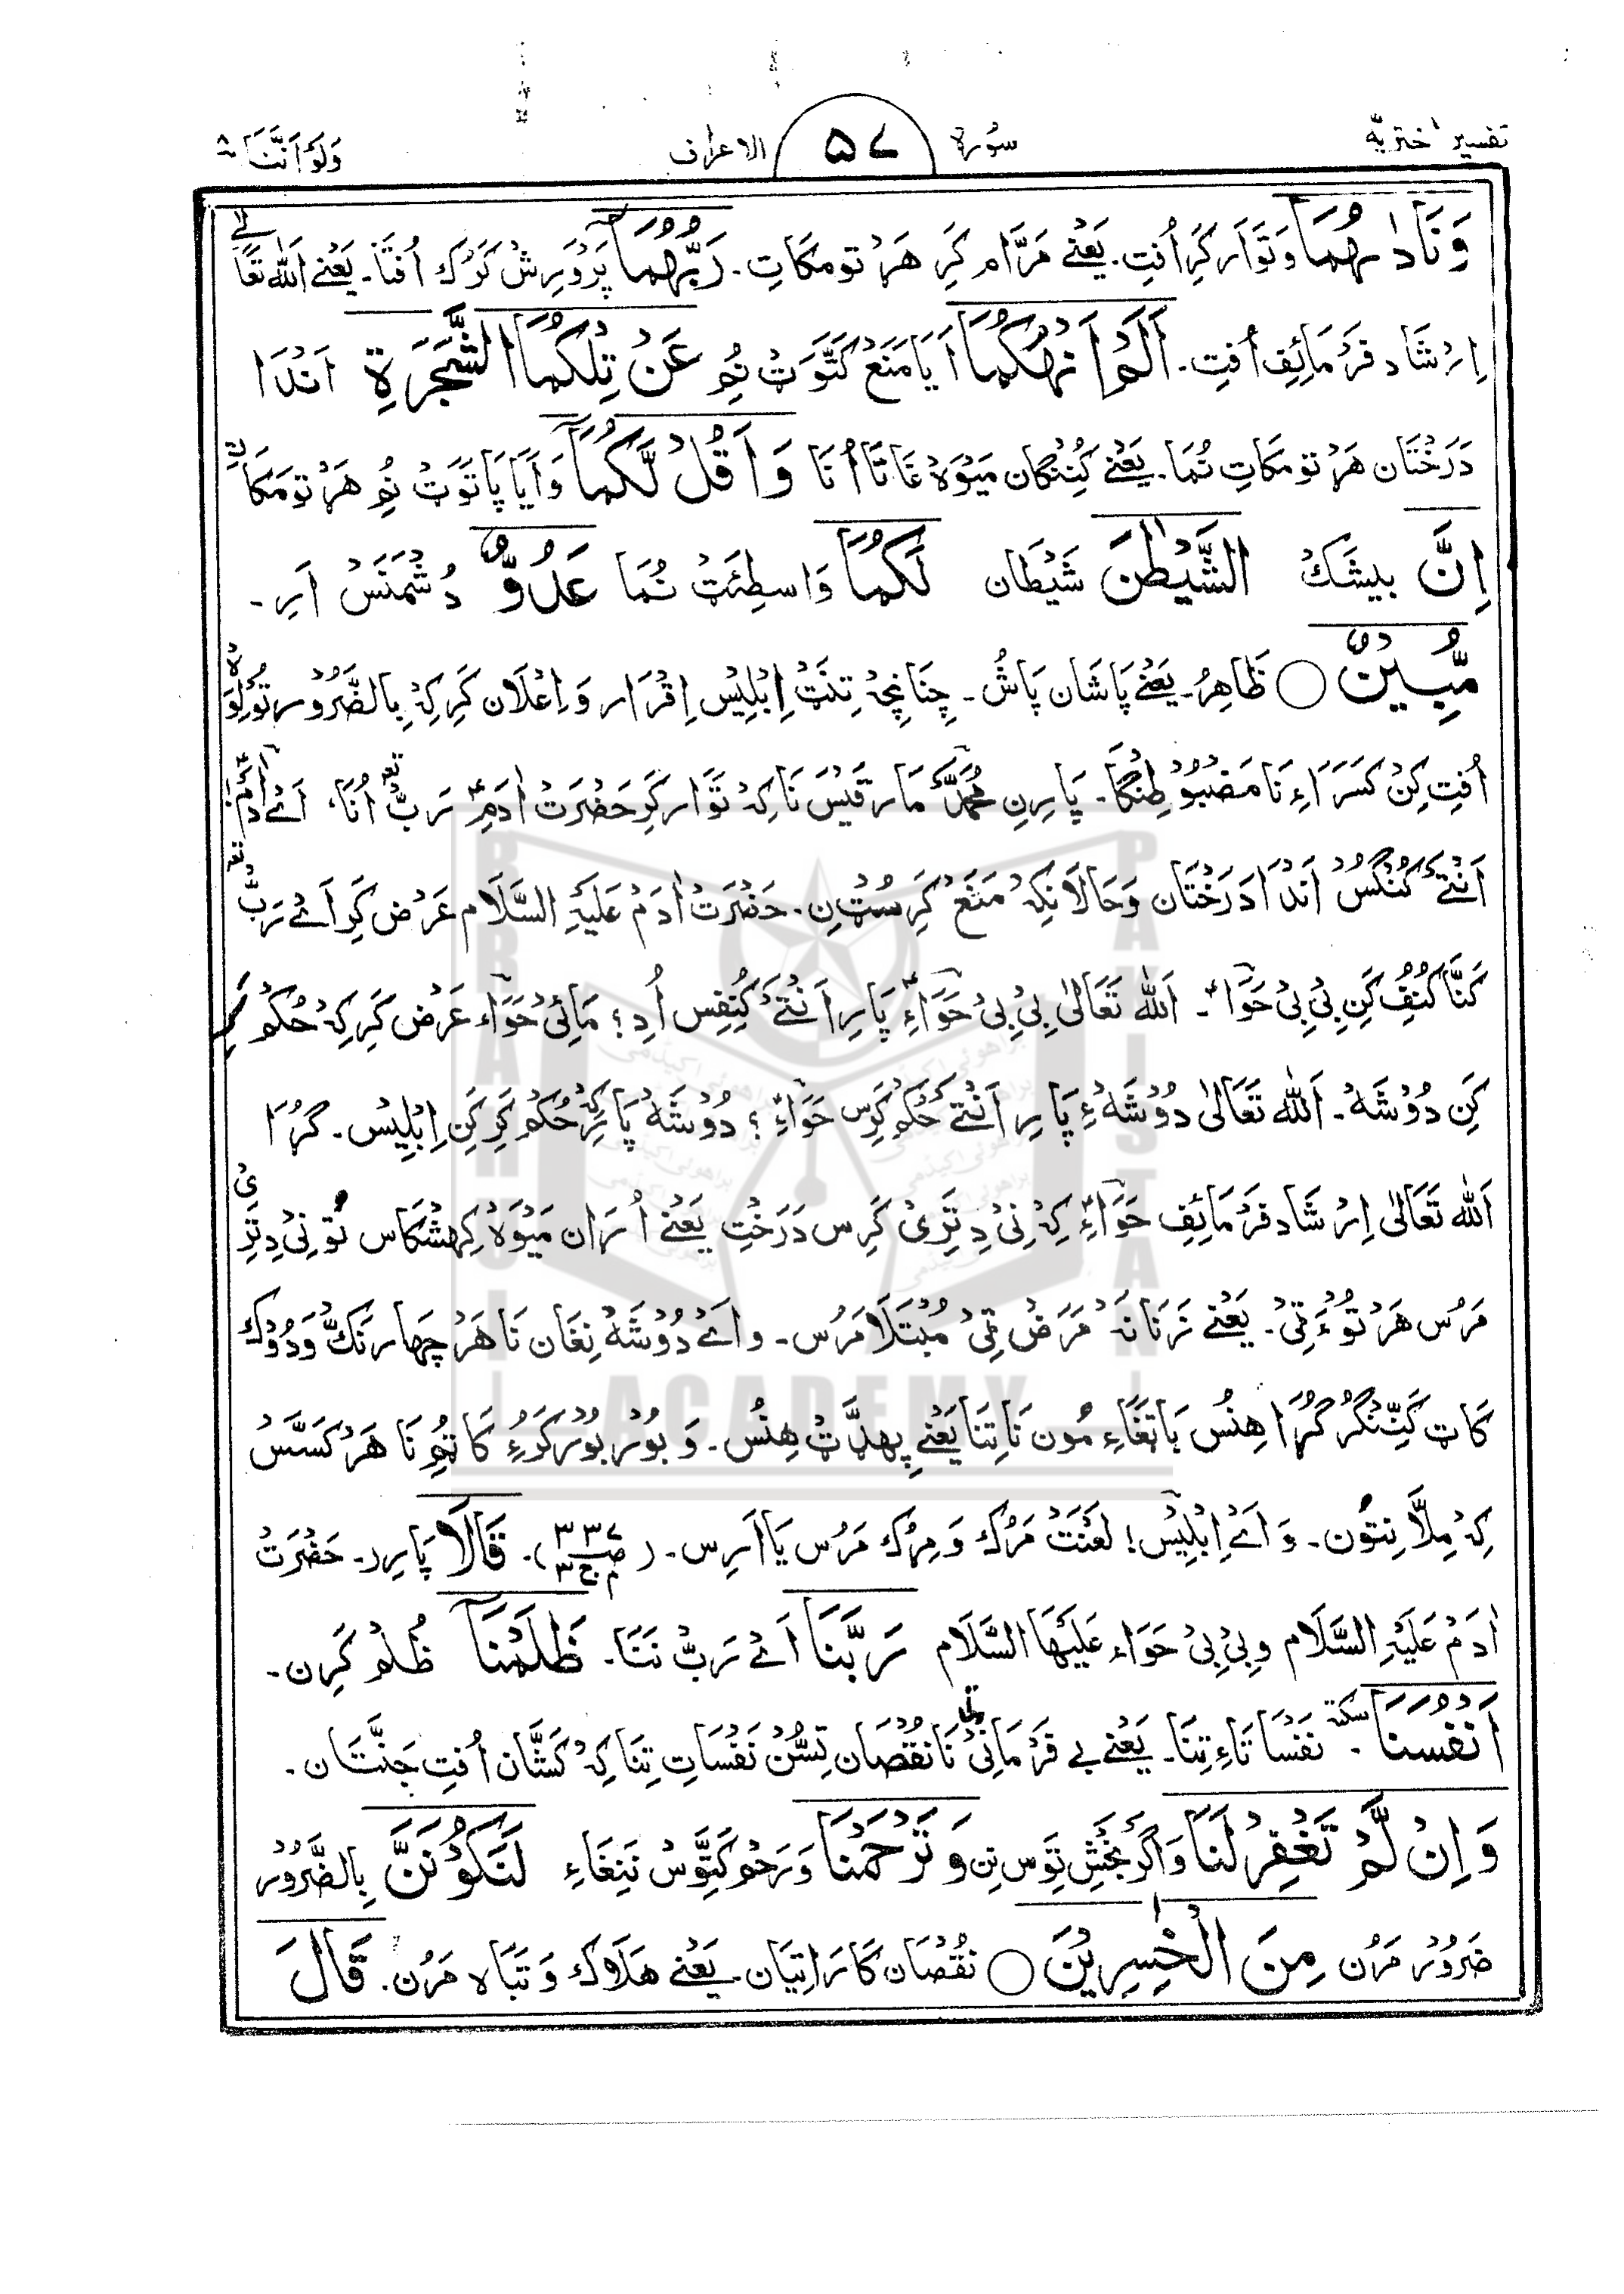 تفسیر اختریه سُورة ۵۷ الاعراف وَلَوْ اَنَّنَا ۸
وَنَادٰىهُمَا وَتَوَار كَرِ اُفتِ۔ يَعْنِے مَرَّام كَرِ هَرْ تومكَاتِ۔ رَبُّهُمَا پَرْوَرِشْ كَرُك اُفتَا۔ يَعْنِے اَللّٰه تَعَالٰے
اِرْشَاد فَرْمَائِفِ اُفتِ۔ اَلَمْ اَنْهَكُمَا اَيَا مَنَعْ كَتَّوَٹ نُمِ عَنْ تِلْكُمَا الشَّجَرَةِ اَنْدَا
دَرَخْتَان هَرْ تو مكَاتِ نُمَا۔ يَعْنِے كُنِنگان مَيْوَهْ غَاتَا اُنَا وَاَقُلْ لَّكُمَا وَاَيَا پَاتَوَٹ نُمِ هَرْ تو مَكَا
اِنَّ بيشَكْ الشَّيْطٰنَ شَيْطَان لَكُمَا وَاسطِئَٹ نُمَا عَدُوٌّ دُشْمَنَسْ اَرِ۔
مُّبِيْنٌ ○ ظَاهِرُ۔ يَعْنِے پَاشَان پَاشُ۔ چِنَانِچِہْ تِنَٹ اِبْلِيْس اِقْرَار وَاِعْلَان كَرِ كِہْ بِالضَّرُوْر تُوْلِوَهْ
اُفتِ كِنْ كَسَرَاءِ نَا مَضْبُوْطنِگَا۔ پَارِنِ مُحَمَّدْ مَا رَقَيْسْ نَا كِہْ تَوَار كَرِ حَضْرَتْ اٰدَمِ رَبُّ اُنَا، اَےْ اٰدَمْ
اَنْتَےْ كُنْگسُ اَنْدَا دَرَخْتَان وَحَالَانكِہْ مَنَعْ كَرِسُٹ نِ۔ حَضْرَتْ اٰدَمْ عَلَيْهِ السَّلَام عَرْض كَرِ اَےْ رَبُّ
كَنَّا كُنِفِ كَنِ بِىْ بِىْ حَوَّاءْ۔ اَللّٰه تَعَالٰى بِىْ بِىْ حَوَّاءِ پَارِ اَنْتَےْ كُنِفِس اُدِ؟ مَائِیْ حَوَّاء عَرْض كَرِ كِہْ حُكُمْ كَرِ
كَنِ دُوْشَہْ۔ اَللّٰه تَعَالٰى دُوْشَہْءِ پَارِ اَنْتَےْ حُكُم كَرِس حَوَّاءِ؟ دُوْشَہْ پَارِ كِہْ حُكُمْ كَرِ كَنِ اِبْلِيْس۔ گُرَا
اَللّٰه تَعَالٰى اِرْشَاد فَرْمَائِف حَوَّاءِ كِہْ نِىْ دِتَرِىْ كَرِس دَرَخْتِ يَعْنِے اُرَان مَيْوَهْ كِهشكَاس تُو نِىْ دِتَرِىْ
مَرُس هَرْ تُوْءَ قِىْ۔ يَعْنِے زَنَانَہْ مَرَضْ قِىْ مُبْتَلَا مَرُس۔ و اَےْ دُوْشَہْ نِغَان نَا هَرْ چَهار نَكّ وَدُوْك
كَاٹ كَٹِنگرْ گُرَا هِنُس بَا تِغَاءِ مُون نَا تِنَا يَعْنِے پِهدَّٹ هِنُس۔ وَبُوْر بُوْر كَرُءُ كَاٹُمِ نَا هَرْ كَسَّسْ
كِہْ مِلَّا نِتُون۔ وَاَےْ اِبْلِيْس! لَعْنَتْ مَرُك وَمِرُك مَرُس يَا اَرِس۔ (ص ۳۳۷ م ج ۳)۔ قَالَا پَارِر۔ حَضْرَتْ
اٰدَمْ عَلَيْهِ السَّلَام وبِىْ بِىْ حَوَاء عَلَيْهَا السَّلَام رَبَّنَا اَےْ رَبُّ نَنَا۔ ظَلَمْنَا ظُلْم كَرِن۔
اَنْفُسَنَا سكتة۔ نَفسَا تَاءِ تِنَا۔ يَعْنِے بے فَرْمَانِىْ نَا نُقْصَان تِسُّن نَفْسَاتِ تِنَا كِہْ كَشَّان اُفتِ جَنَّتَان۔
وَاِنْ لَّمْ تَغْفِرْ لَنَا وَاَگَر بَخْش تَوِس نِن وَتَرْحَمْنَا وَرَحْم كَتَّوِسْ نَنِغَاءِ لَنَكُوْنَنَّ بِالضَّرُوْر
ضَرُوْر مَرُن مِنَ الْخٰسِرِيْنَ ○ نُقْصَان كَارَاتِيَان۔ يَعْنِے هَلَاوك وَتَبَاه مَرُن۔ قَالَ
BRAHUI ACADEMY PAKISTAN